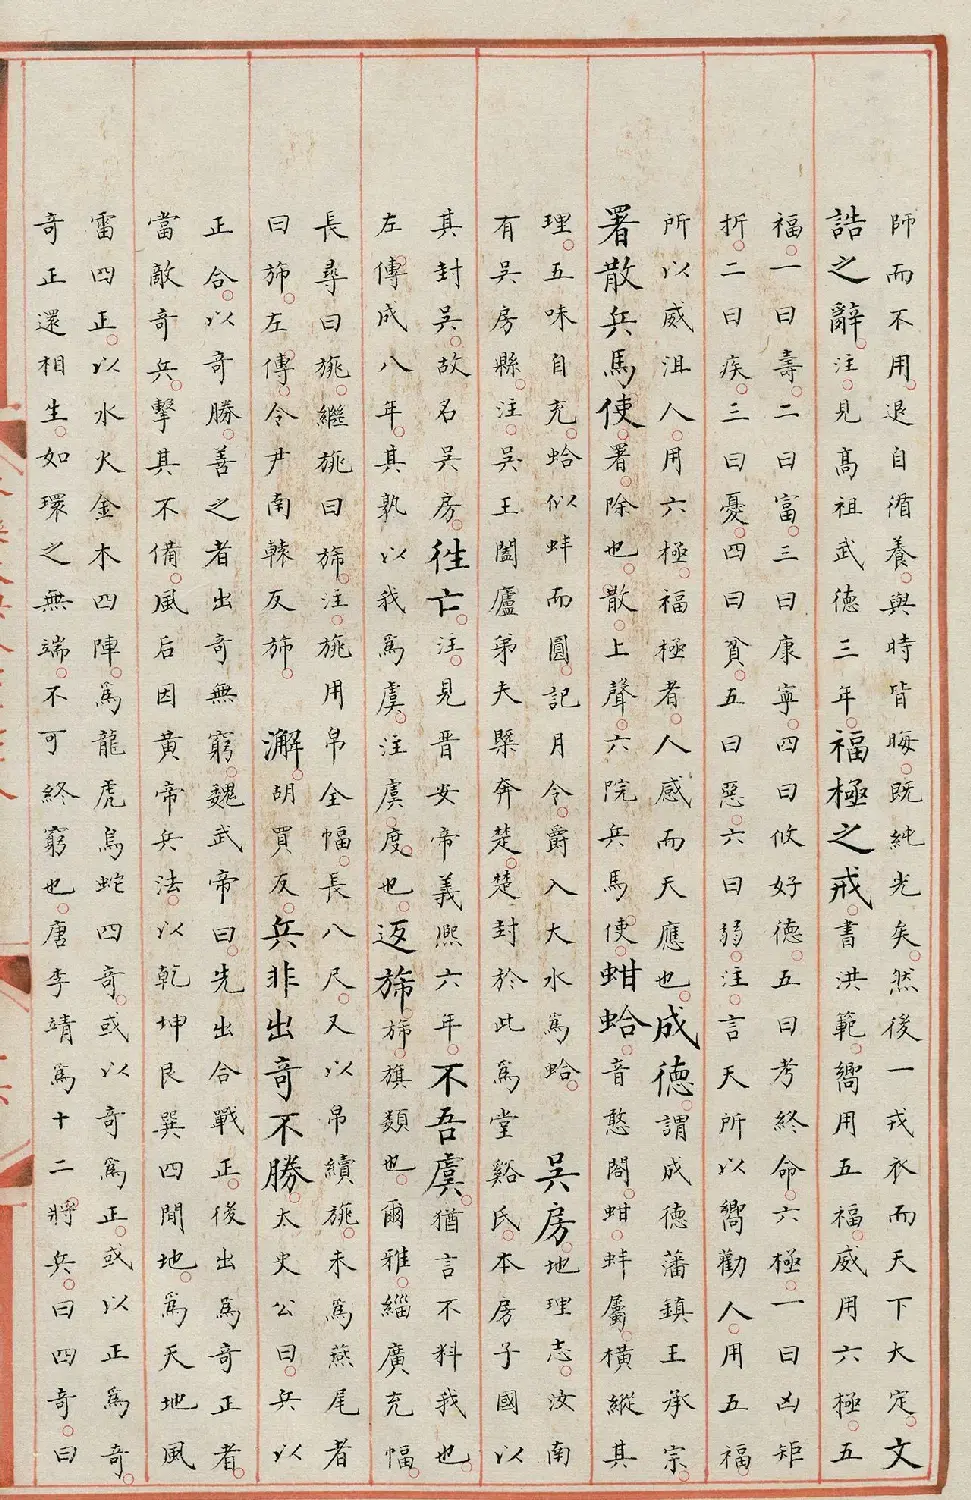 師而不用退自循養與時皆晦既純光矣然後一戎衣而天下大定文
誥之辭注見高祖武德三年福極之戒書洪範嚮用五福威用六極五
福一曰壽二曰富三曰康寧四曰攸好德五曰考終命六極一曰凶短
折二曰疾三曰憂四曰貧五曰惡六曰弱注言天所以嚮勸人用五福
所以威沮人用六極福極者人感而天應也成德謂成德藩鎮王承宗
署散兵馬使署除也散上聲六院兵馬使蚶蛤音憨閤蚶蚌屬橫縱其
理五味自充蛤似蚌而圓記月令爵入大水爲蛤 吳房地理志汝南
有吳房縣注吳王闔廬弟夫槩奔楚楚封於此爲堂谿氏本房子國以
其封吳故名吳房徃亡注見晋安帝義熙六年不吾虞猶言不料我也
左傳成八年其孰以我爲虞注虞度也返斾斾旗類也爾雅緇廣充幅
長尋曰旐繼旐曰斾注旐用帛全幅長八尺又以帛續旐末爲燕尾者
曰斾左傳令尹南轅反斾 澥胡買反兵非出奇不勝太史公曰兵以
正合以奇勝善之者出奇無窮魏武帝曰先出合戰正後出爲奇正者
當敵奇兵擊其不備風后因黄帝兵法以乾坤艮巽四間地爲天地風
雷四正以水火金木四陣爲龍虎鳥蛇四奇或以奇爲正或以正爲奇
奇正還相生如環之無端不可終窮也唐李靖爲十二將兵曰四奇曰